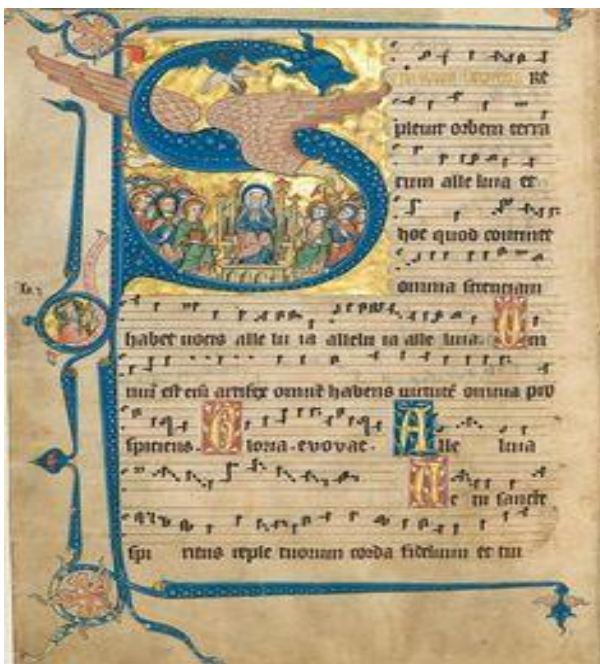 S RE
pleuit orbem terra
rum alle luia et
hoc quod continet
omnia scienciam
habet uocis alle lu ia allelu ia alle luia. Om
niū est eni artifex omnē habens uirtutē omnia pro
spiciens. Gloria. evovae. Alle luia
Ve ni sancte
spi ritus reple tuorum corda fidelium et tui